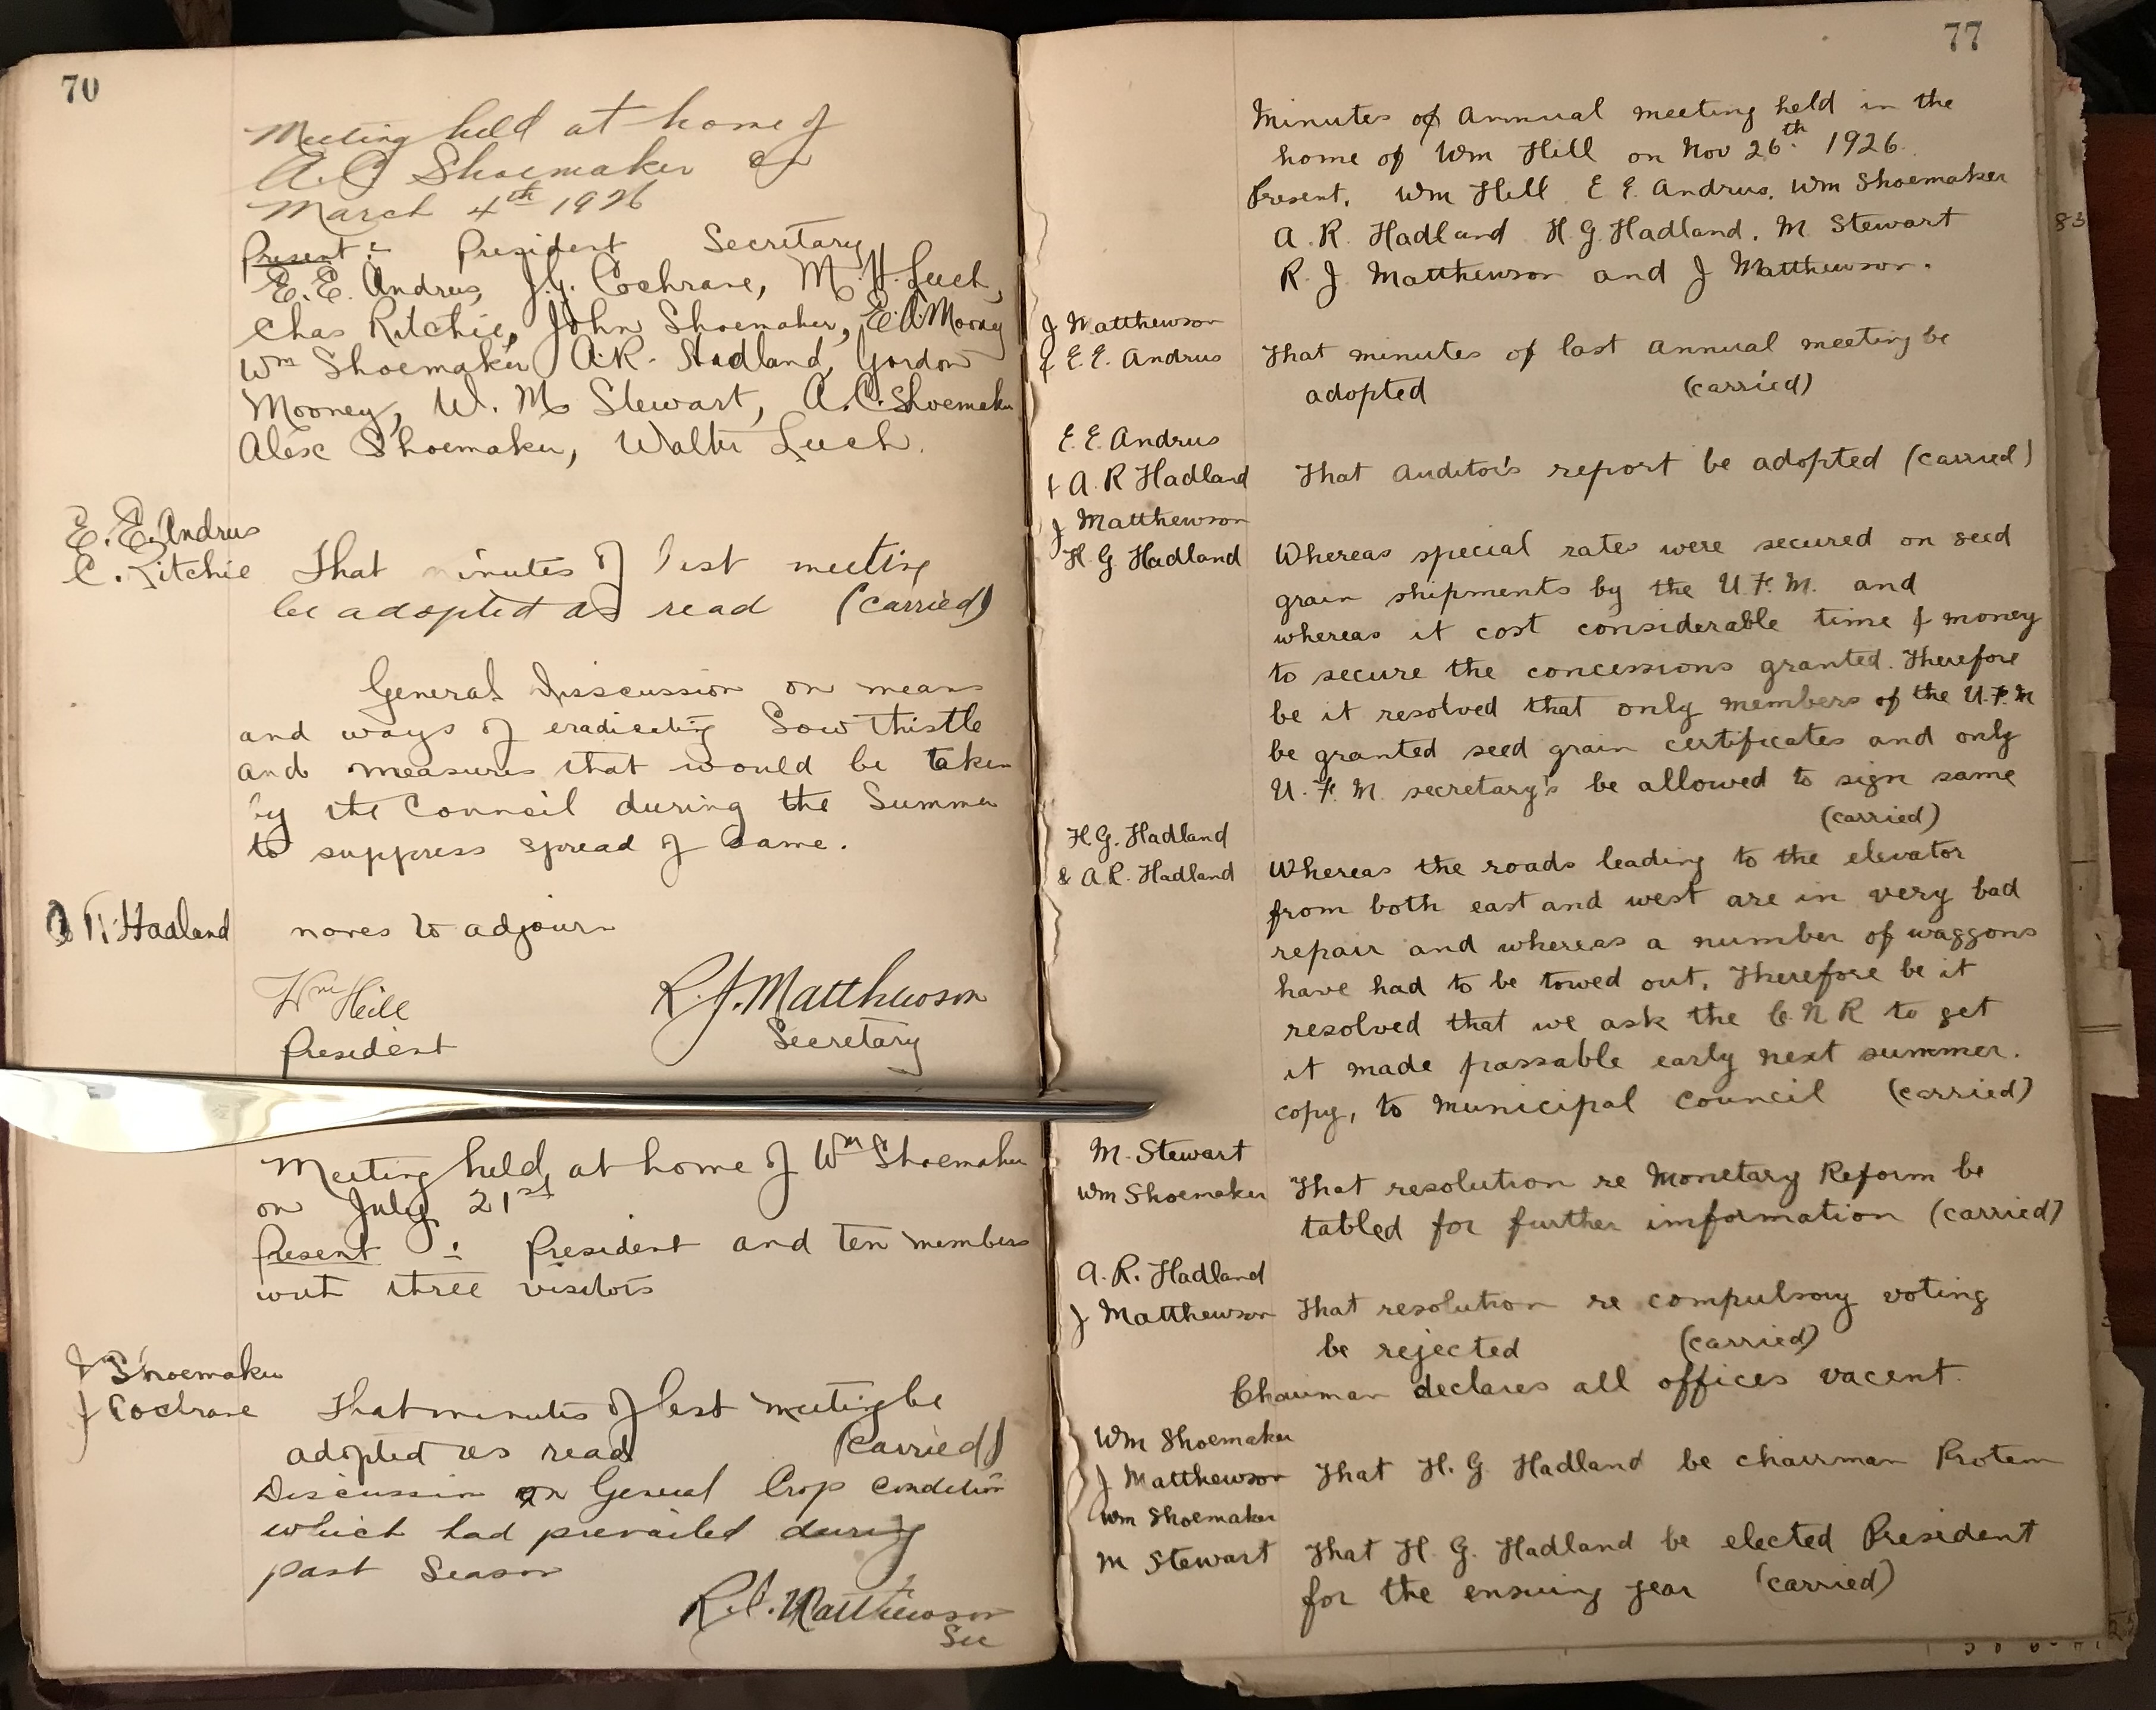 70
Meeting held at home of
A.C. Shoemaker on
March 4th 1926
Present :- President Secretary
E. E. Andrus, J. G. Cochrane, M. H. Leech,
Chas Ritchie, John Shoemaker, E. A. Mooney
Wm Shoemaker A. R. Hadland, Gordon
Mooney, W. M. Stewart, A. C. Shoemaker
Alex Shoemaker, Walter Leech.
E. E. Andrus
C. Ritchie That minutes of last meeting
be adopted as read (carried)
General Disscussion on means
and ways of eradicating Sow thistle
and measures that would be taken
by the Council during the Summer
to suppress spread of same.
A R. Hadland moves to adjourn
Wm Hill R. J. Matthewson
President Secretary
Meeting held at home of Wm Shoemaker
on July 21st
Present : President and ten members
wit three visitors
J Shoemaker
J Cochrane That minutes of last meeting be
adopted as read (carried)
Discussion on General Crop condition
which had prevailed during
past Season
R. J. Matthewson
Sec
77
Minutes of Annual meeting held in the
home of Wm Hill on Nov 26th 1926.
Present, Wm Hill E E. Andrus, Wm Shoemaker
A. R. Hadland H. G. Hadland. M. Stewart
R. J. Matthewson and J Matthewson.
J Matthewson
& E E. Andrus That minutes of last annual meeting be
adopted (carried)
E. E. Andrus
& A. R Hadland That auditor's report be adopted (carried)
J Matthewson
H. G. Hadland Whereas special rates were secured on seed
grain shipments by the U. F. M. and
whereas it cost considerable time & money
to secure the concessions granted. Therefore
be it resolved that only members of the U. F. M
be granted seed grain certificates and only
U. F. M. secretary's be allowed to sign same
(carried)
H. G. Hadland
& A. R. Hadland Whereas the roads leading to the elevator
from both east and west are in very bad
repair and whereas a number of waggons
have had to be towed out. Therefore be it
resolved that we ask the C. N R to get
it made passable early next summer.
copy, to municipal council (carried)
M. Stewart
Wm Shoemaker That resolution re Monetary Reform be
tabled for further imformation (carried)
A. R. Hadland
J Matthewson That resolution re compulsory voting
be rejected (carried)
Chairman declares all offices vacent.
Wm Shoemaker
J Matthewson That H. G. Hadland be chairman Protem
Wm Shoemaker
M Stewart That H. G. Hadland be elected President
for the ensuing year (carried)
83